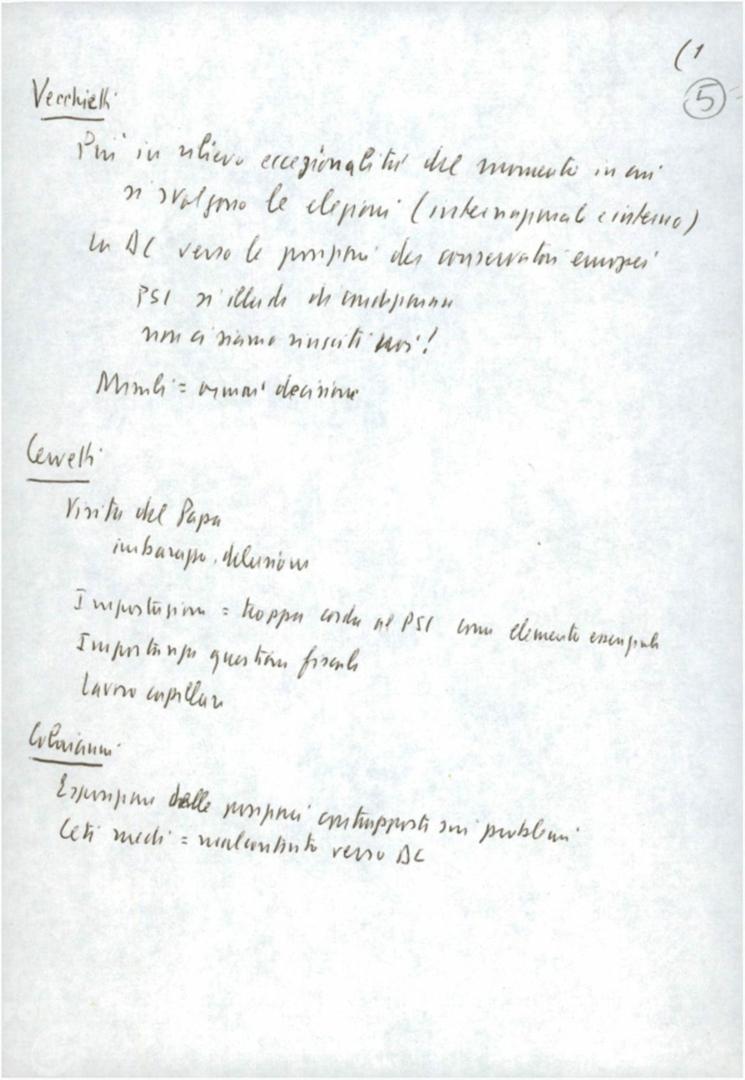 (1
5
Vecchietti
Più in rilievo eccezionalità del momento in cui
si svolgono le elezioni (internazionale e interno)
La DC verso le posizioni dei conservatori europei
PSI si illude di condizionare
non ci siamo riusciti noi!
= decisione
Cervetti
Visita del Papa
imbarazzo, delusione
Impostazione = troppa corda al PSI come elemento essenziale
Importanza questione fiscale
Lavoro capillare
Colajanni
Esposizione delle posizioni contrapposte sui problemi
Ceti medi = malcontento verso DC